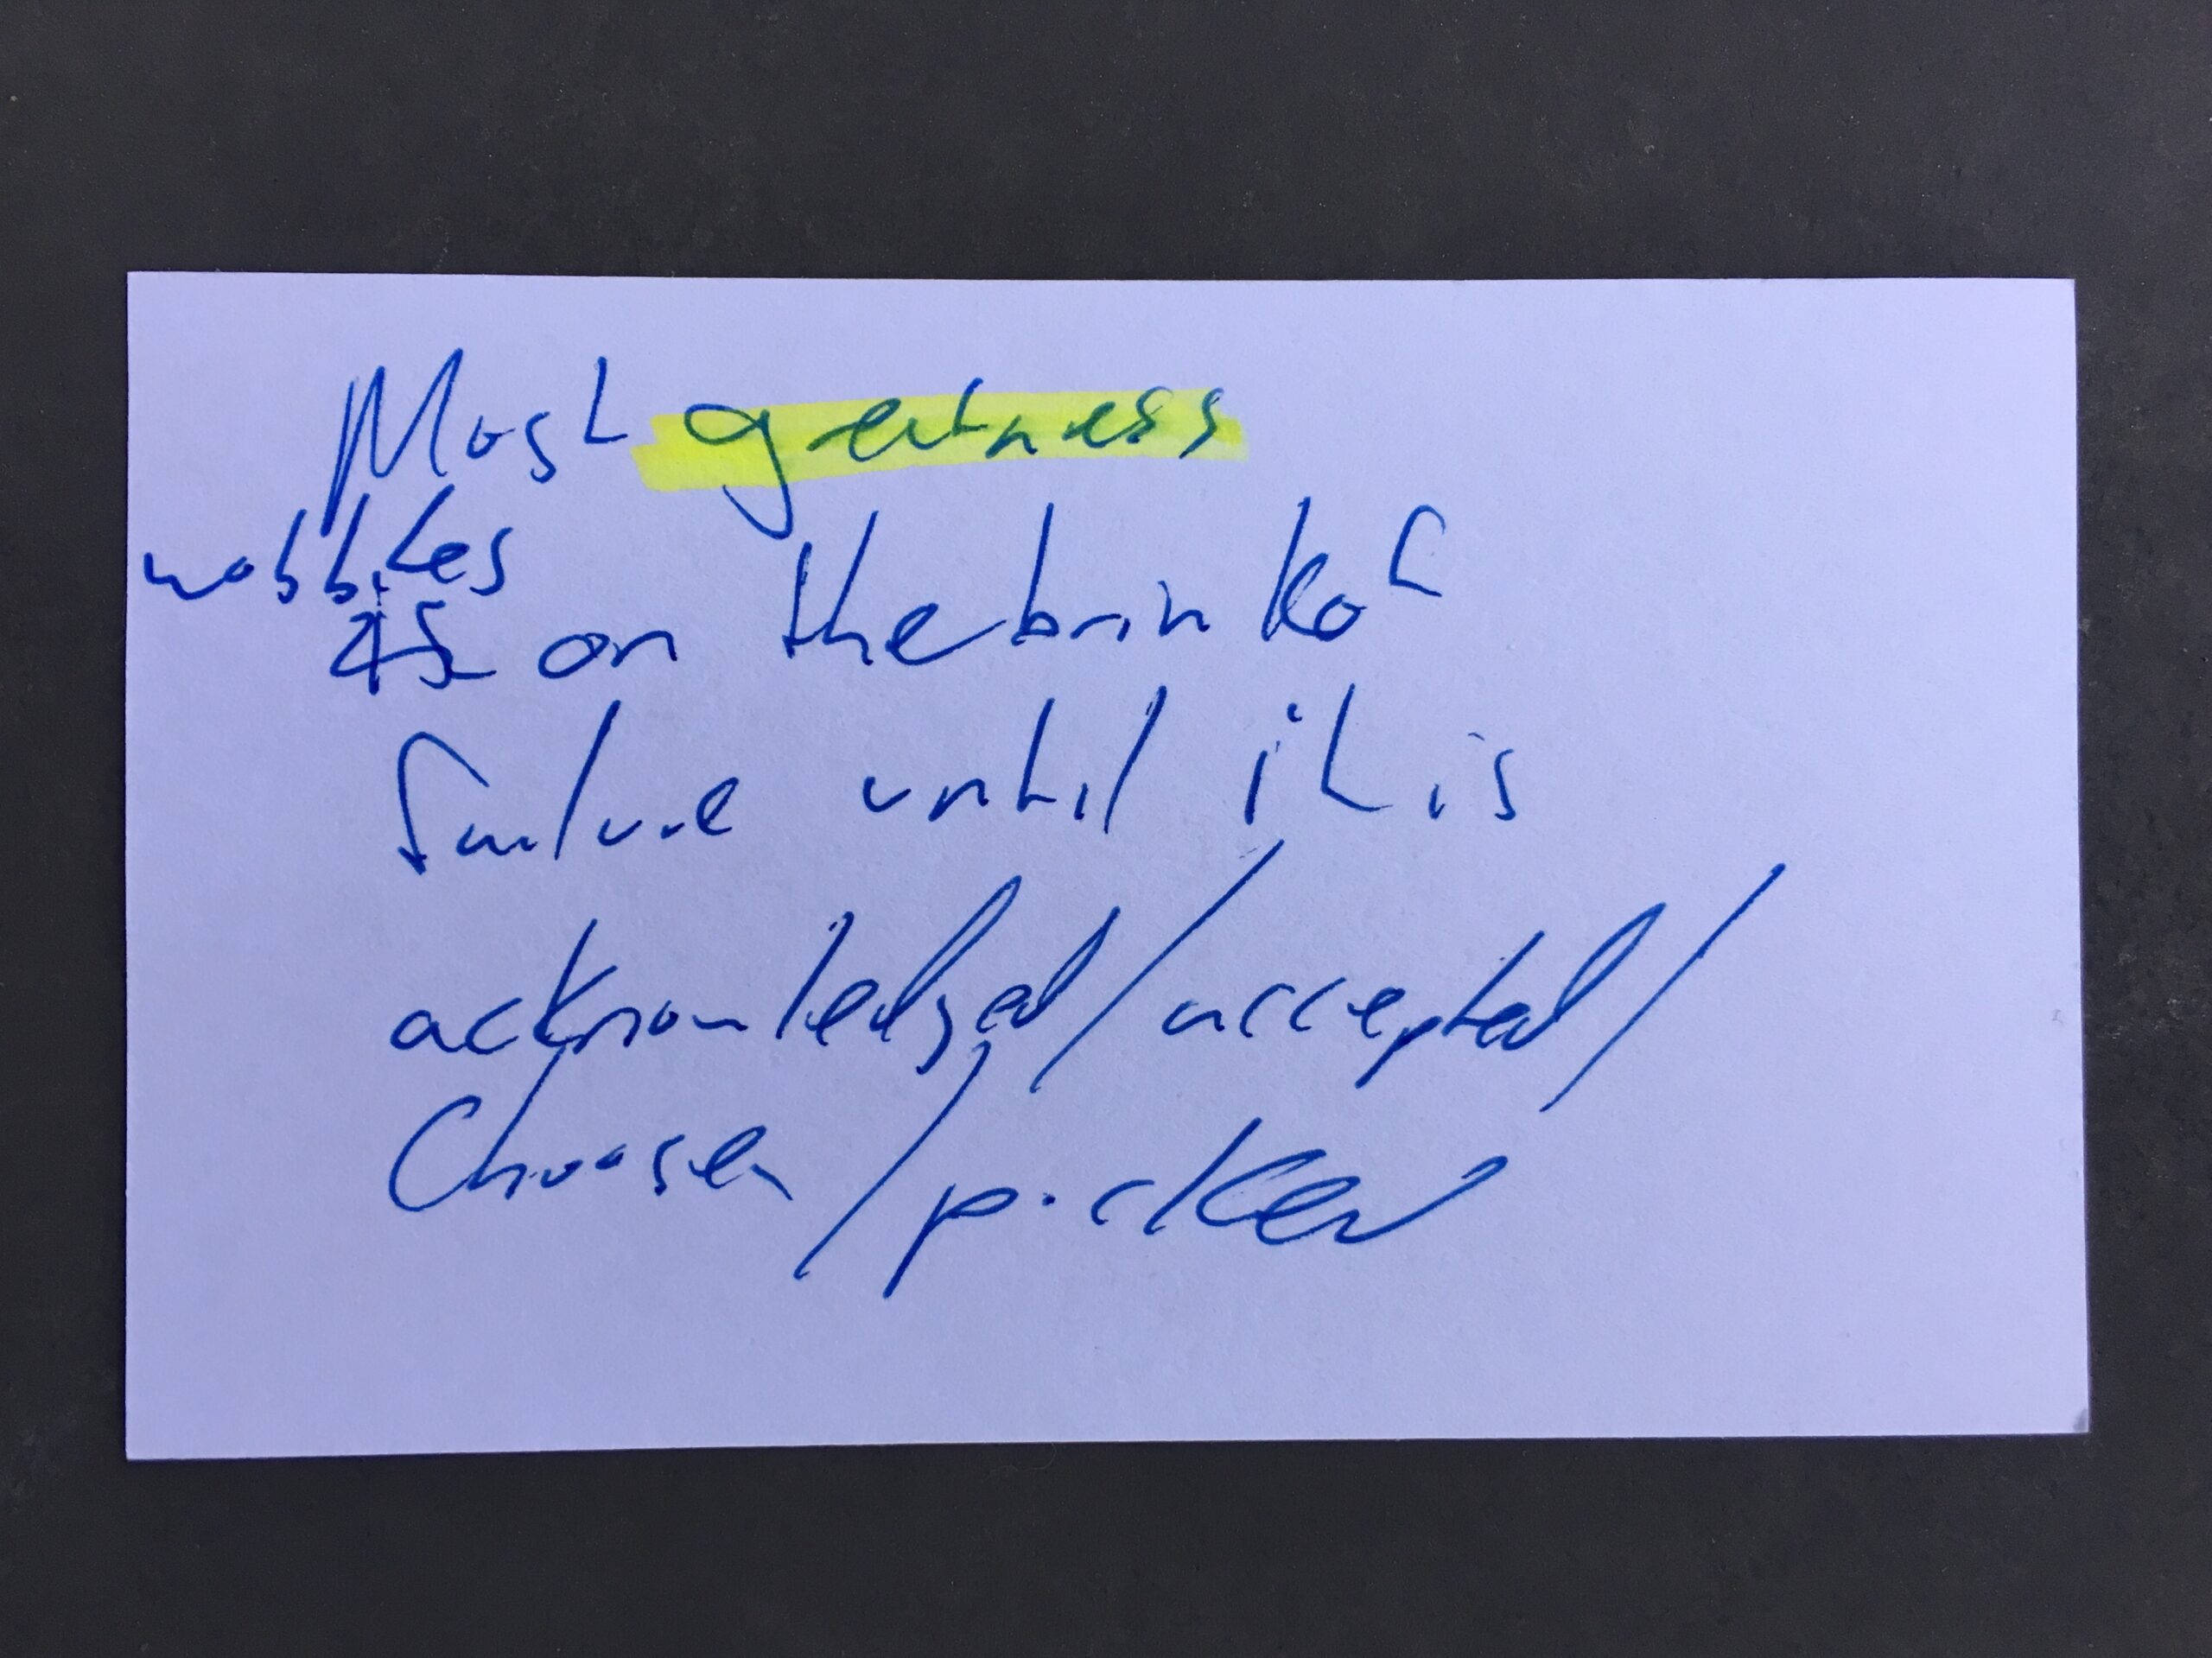 Most greatness
wobbles
is on the brink of
failure until it is
acknowledged/accepted/
Choosen/picked